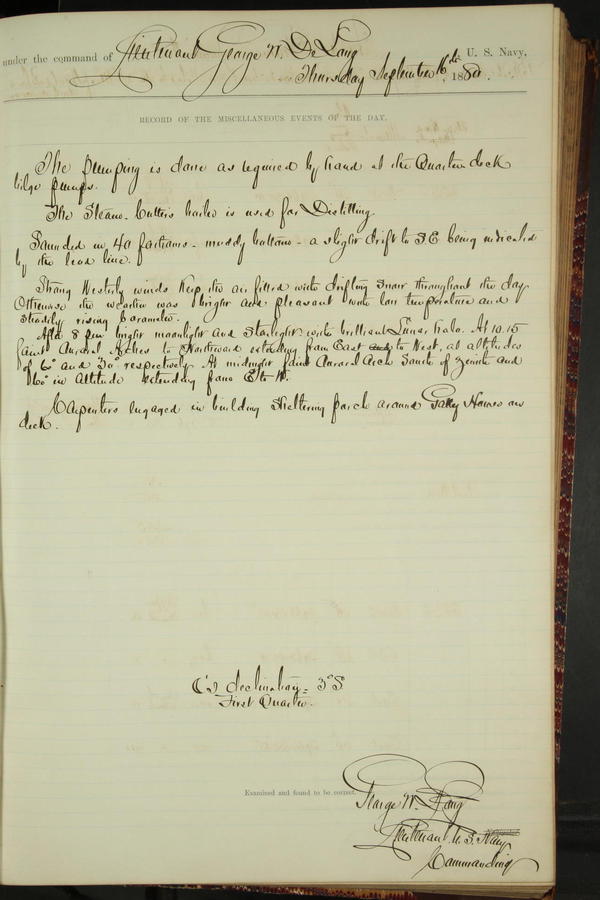 under the command of Lieutenant George W. De Long U. S. Navy,
Thursday September 16th, 1880.
RECORD OF THE MISCELLANEOUS EVENTS OF THE DAY.
The pumping is done as required by hand at the Quarter deck
bilge pumps.
The Steam-Cutters boiler is used for Distilling.
Sounded in 40 fathoms - muddy bottom - a slight drift to SE being indicated
by the lead line.
Strong Westerly winds Keep the air filled with drifting snow throughout the day.
Otherwise the weather was bright and pleasant with low temperature and
steadily rising barometer.
After 8 pm bright moonlight and Starlight with brilliant Lunar halo. At 10.15
faint Auroral Arches to Northward extending from East to West, at altitudes
of 6° and 30° respectively. At midnight faint Auroral Arch South of Zenith and
in altitude extending from E to W.
Carpenters engaged in building Sheltering porch around Galley House on
deck.
declination = 3° S
First Quarter.
Examined and found to be correct.
George W. De Long
Lieutenant U. S. Navy
Commanding